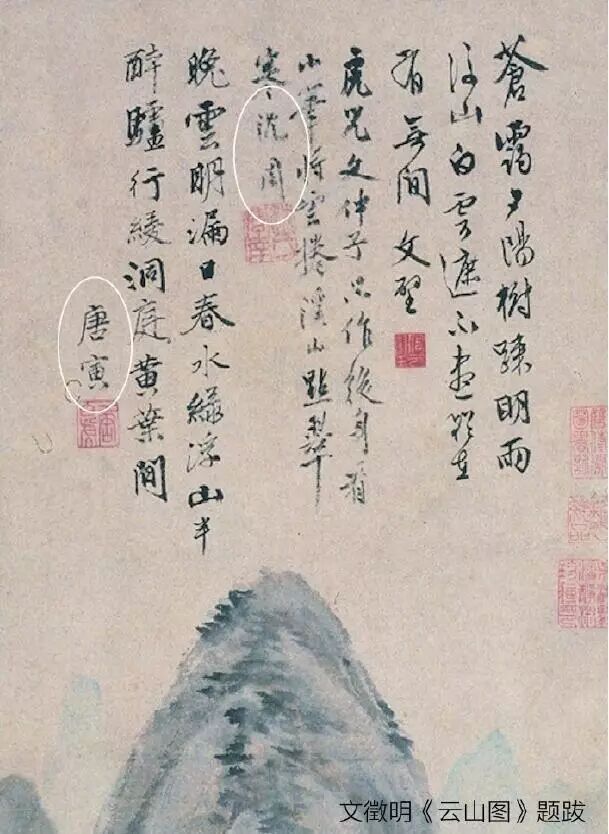 蒼靄夕陽樹疎明雨
後山白雲遮不盡在
有無間 文璧
虎兒文仲子只作後身看
小筆將雲捲溪山點翠
寒 沈周
晚雲明漏日春水綠浮山半
醉驢行緩洞庭黃葉間
唐寅
文徵明《云山图》题跋